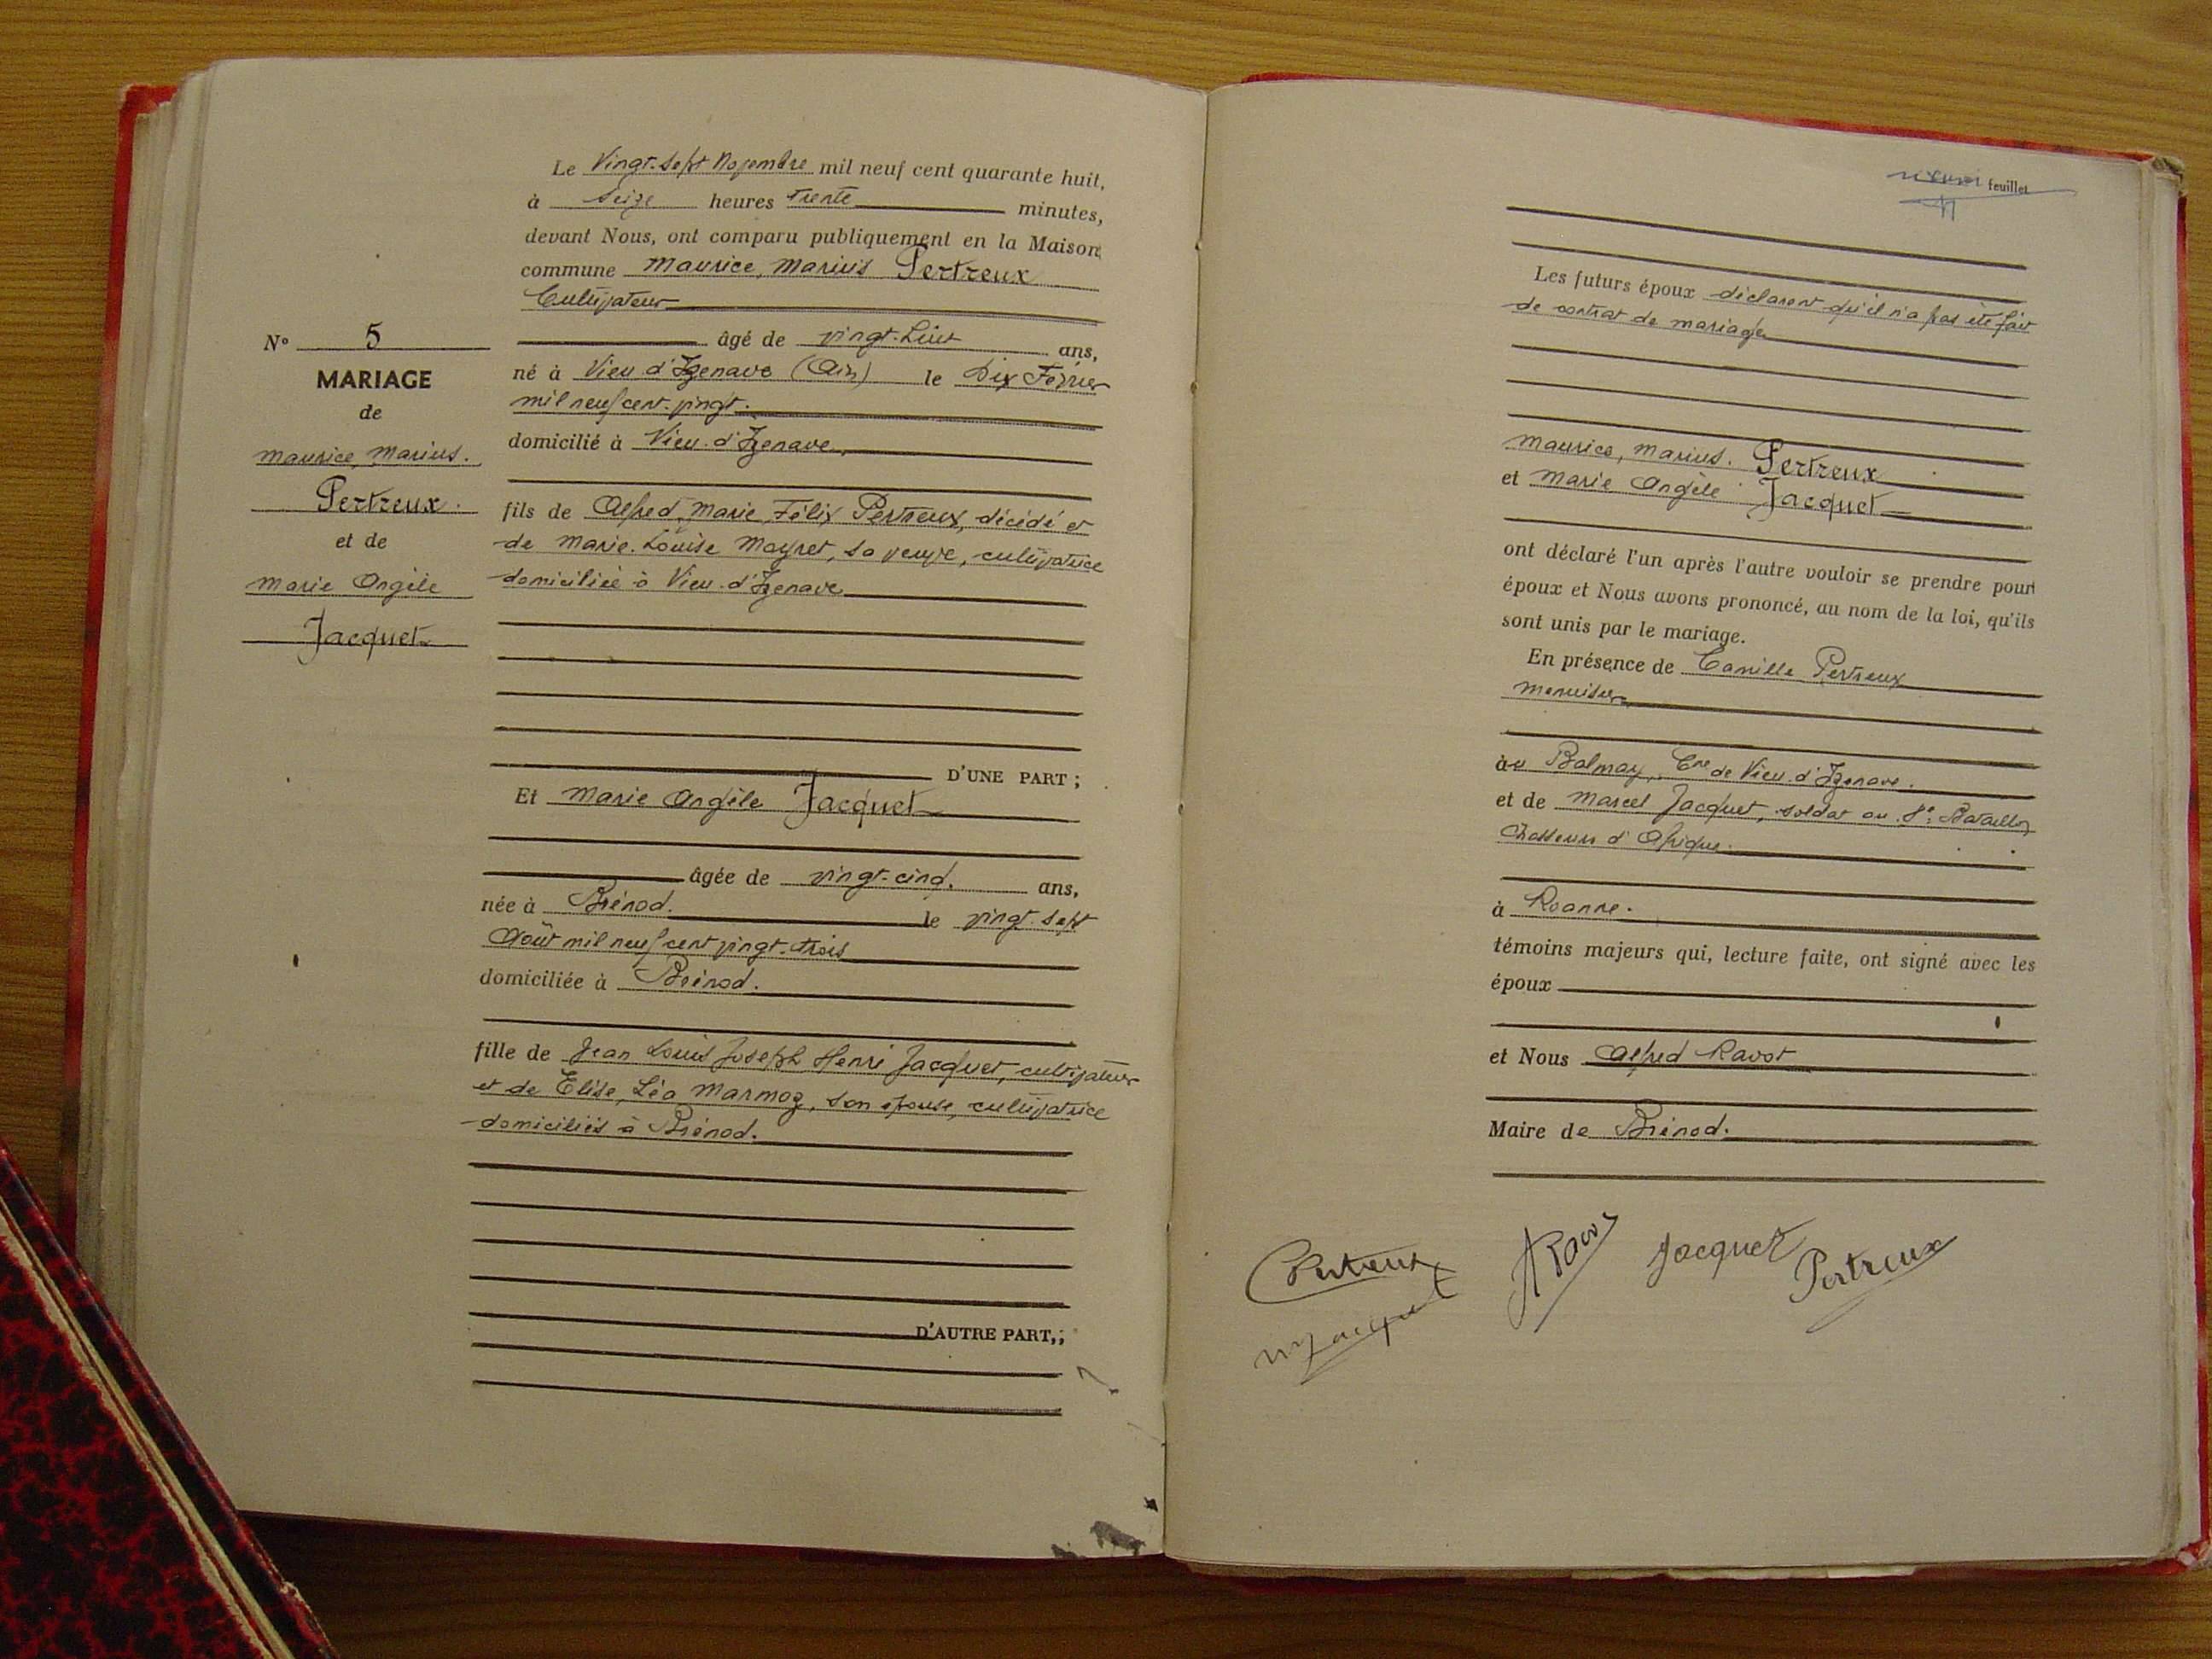 N° 5
MARIAGE
de
Maurice, Marius.
Pertreux.
et de
Marie Angèle
Jacquet
Le Vingt-sept Novembre mil neuf cent quarante huit,
à Seize heures trente minutes,
devant Nous, ont comparu publiquement en la Maison
commune Maurice, Marius Pertreux
Cultivateur
âgé de vingt-huit ans,
né à Vieu d'Izenave (Ain) le Dix Février
mil neuf cent vingt.
domicilié à Vieu-d'Izenave,
fils de Alfred, Marie, Félix Pertreux, décédé et
de Marie-Louise Mayret, sa veuve, cultivatrice
domiciliée à Vieu-d'Izenave
D'UNE PART ;
Et Marie Angèle Jacquet
âgée de vingt-cinq. ans,
née à Brénod. le vingt-sept
Août mil neuf cent vingt-trois
domiciliée à Brénod.
fille de Jean Louis Joseph Henri Jacquet, cultivateur
et de Elise, Léa Marmoz, son épouse, cultivatrice
domiciliés à Brénod.
D'AUTRE PART,;
feuillet
Les futurs époux déclarent qu'il n'a pas été fait
de contrat de mariage
Maurice, Marius. Pertreux
et Marie Angèle Jacquet
ont déclaré l'un après l'autre vouloir se prendre pour
époux et Nous avons prononcé, au nom de la loi, qu'ils
sont unis par le mariage.
En présence de Camille Pertreux
menuisier
au Balmay, Cne de Vieu-d'Izenave.
et de Marcel Jacquet, soldat au 8e Bataillon
Chasseurs d'Afrique.
à Roanne.
témoins majeurs qui, lecture faite, ont signé avec les
époux
et Nous Alfred Ravot
Maire de Brénod.
CPertreux ARavot Jacquet Pertreux
MJacquet